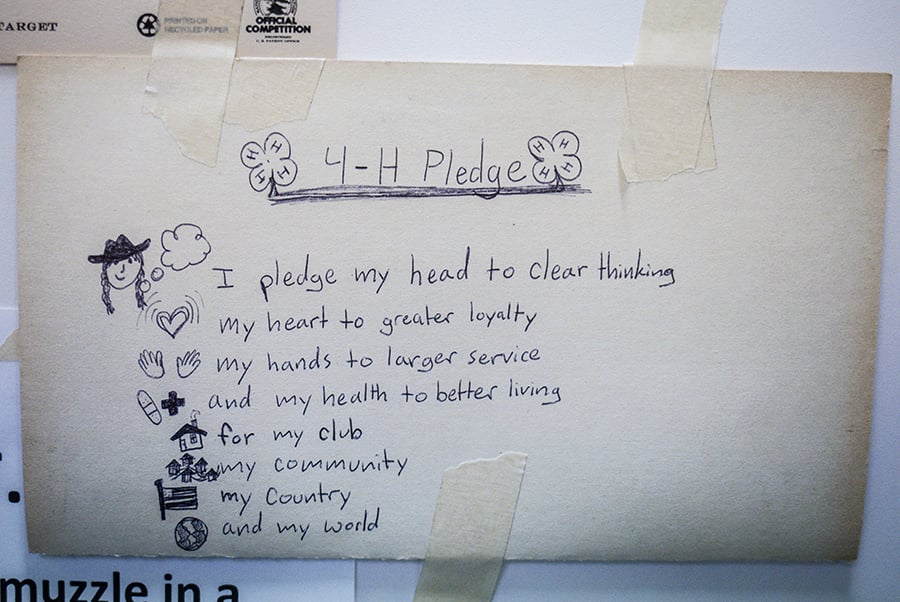 TARGET
PRINTED ON
RECYCLED PAPER
OFFICIAL
COMPETITION
H H H H 4-H Pledge H H H H
I pledge my head to clear thinking
my heart to greater loyalty
my hands to larger service
and my health to better living
for my club
my community
my Country
and my world
muzzle in a